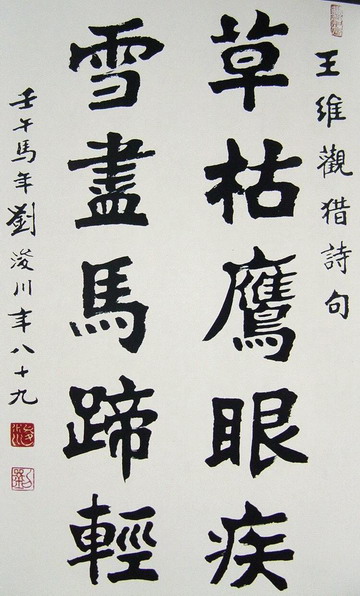 王維觀猎詩句
草枯鷹眼疾
雪盡馬蹄輕
壬午馬年劉浚川年八十九